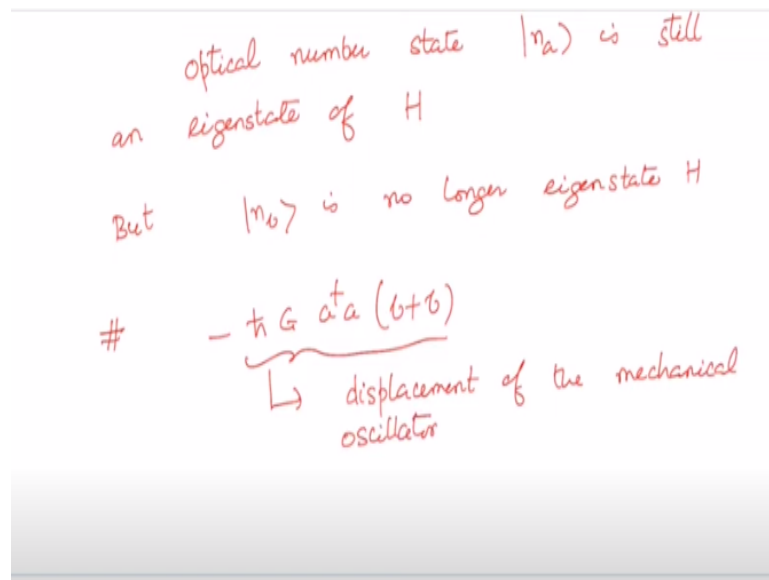 optical number state |nₐ⟩ is still
an eigenstate of H
But |n_b⟩ is no longer eigenstate H
# - ħ G a†a (b+b)
↳ displacement of the mechanical
oscillator